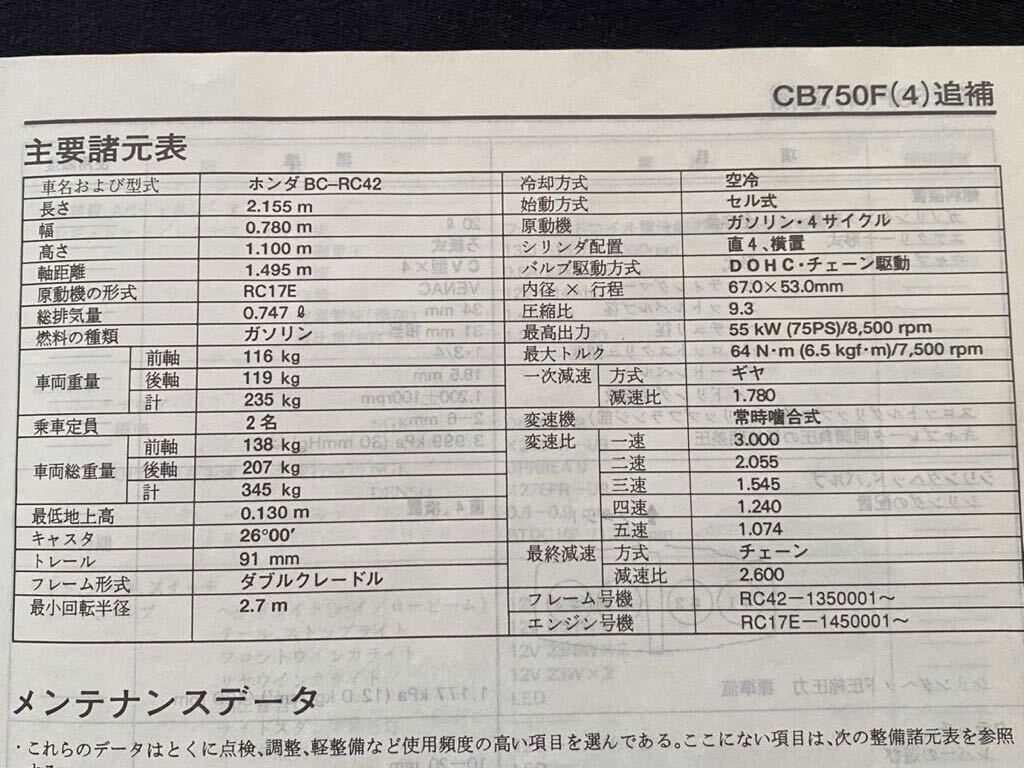 CB750F(4)追補
主要諸元表
車名および型式 ホンダBC–RC42
長さ 2.155 m
幅 0.780 m
高さ 1.100 m
軸距離 1.495 m
原動機の形式 RC17E
総排気量 0.747 ℓ
燃料の種類 ガソリン
車両重量 前軸 116 kg
後軸 119 kg
計 235 kg
乗車定員 2名
車両総重量 前軸 138 kg
後軸 207 kg
計 345 kg
最低地上高 0.130 m
キャスタ 26°00′
トレール 91 mm
フレーム形式 ダブルクレードル
最小回転半径 2.7 m
冷却方式 空冷
始動方式 セル式
原動機 ガソリン・4サイクル
シリンダ配置 直4、横置
バルブ駆動方式 DOHC・チェーン駆動
内径 × 行程 67.0×53.0mm
圧縮比 9.3
最高出力 55 kW (75PS)/8,500 rpm
最大トルク 64 N・m (6.5 kgf・m)/7,500 rpm
一次減速 方式 ギヤ
減速比 1.780
変速機 常時嚙合式
変速比 一速 3.000
二速 2.055
三速 1.545
四速 1.240
五速 1.074
最終減速 方式 チェーン
減速比 2.600
フレーム号機 RC42−1350001〜
エンジン号機 RC17E−1450001〜
メンテナンスデータ
・これらのデータはとくに点検、調整、軽整備など使用頻度の高い項目を選んである。ここにない項目は、次の整備諸元表を参照